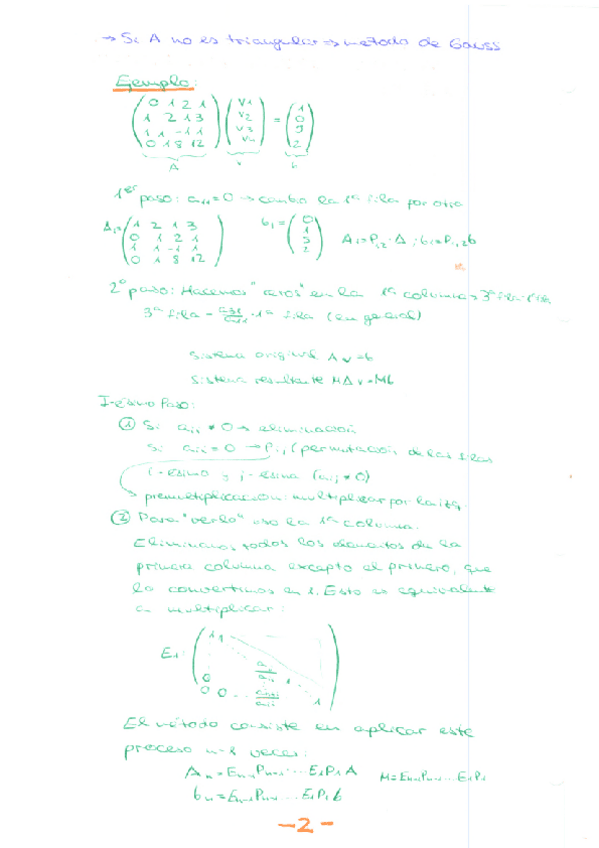 → Si A no es triangular ⇒ metodo de Gauss
Ejemplo:
( 0 1 2 1 ) ( v1 ) = ( 1 )
( 1 2 1 3 ) ( v2 ) ( 0 )
( 1 1 -1 1 ) ( v3 ) ( 9 )
( 0 1 8 12 ) ( v4 ) ( 2 )
A v b
1er paso: a11=0 → cambio la 1ª fila por otra
A1=( 1 2 1 3 ) b1=( 0 )
( 0 1 2 1 ) ( 1 ) A1=P1,2·A ; b1=P1,2b
( 1 1 -1 1 )
( 0 1 8 12 ) ( 2 )
2º paso: Hacemos "ceros" en la 1ª columna → 3ª fila - 1ª fila
3ª fila - a31/a11 · 1ª fila (en general)
Sistema original Av=b
Sistema resultante MAv=Mb
I-ésimo Paso:
① Si aii ≠ 0 → eliminación
Si aii = 0 → Pij (permutación de las filas
i-esima y j-esima (aij ≠ 0)
premultiplicacion: multiplicar por la izq.
② Para "verlo" uso la 1ª columna.
Eliminamos todos los elementos de la
primera columna excepto el primero, que
lo convertimos en 1. Esto es equivalente
a multiplicar:
E1:
El método consiste en aplicar este
proceso n-1 veces:
An = En-1Pn-1...E1P1A M=En-1Pn-1...E1P1
bn=En-1Pn-1...E1P1b
-2-